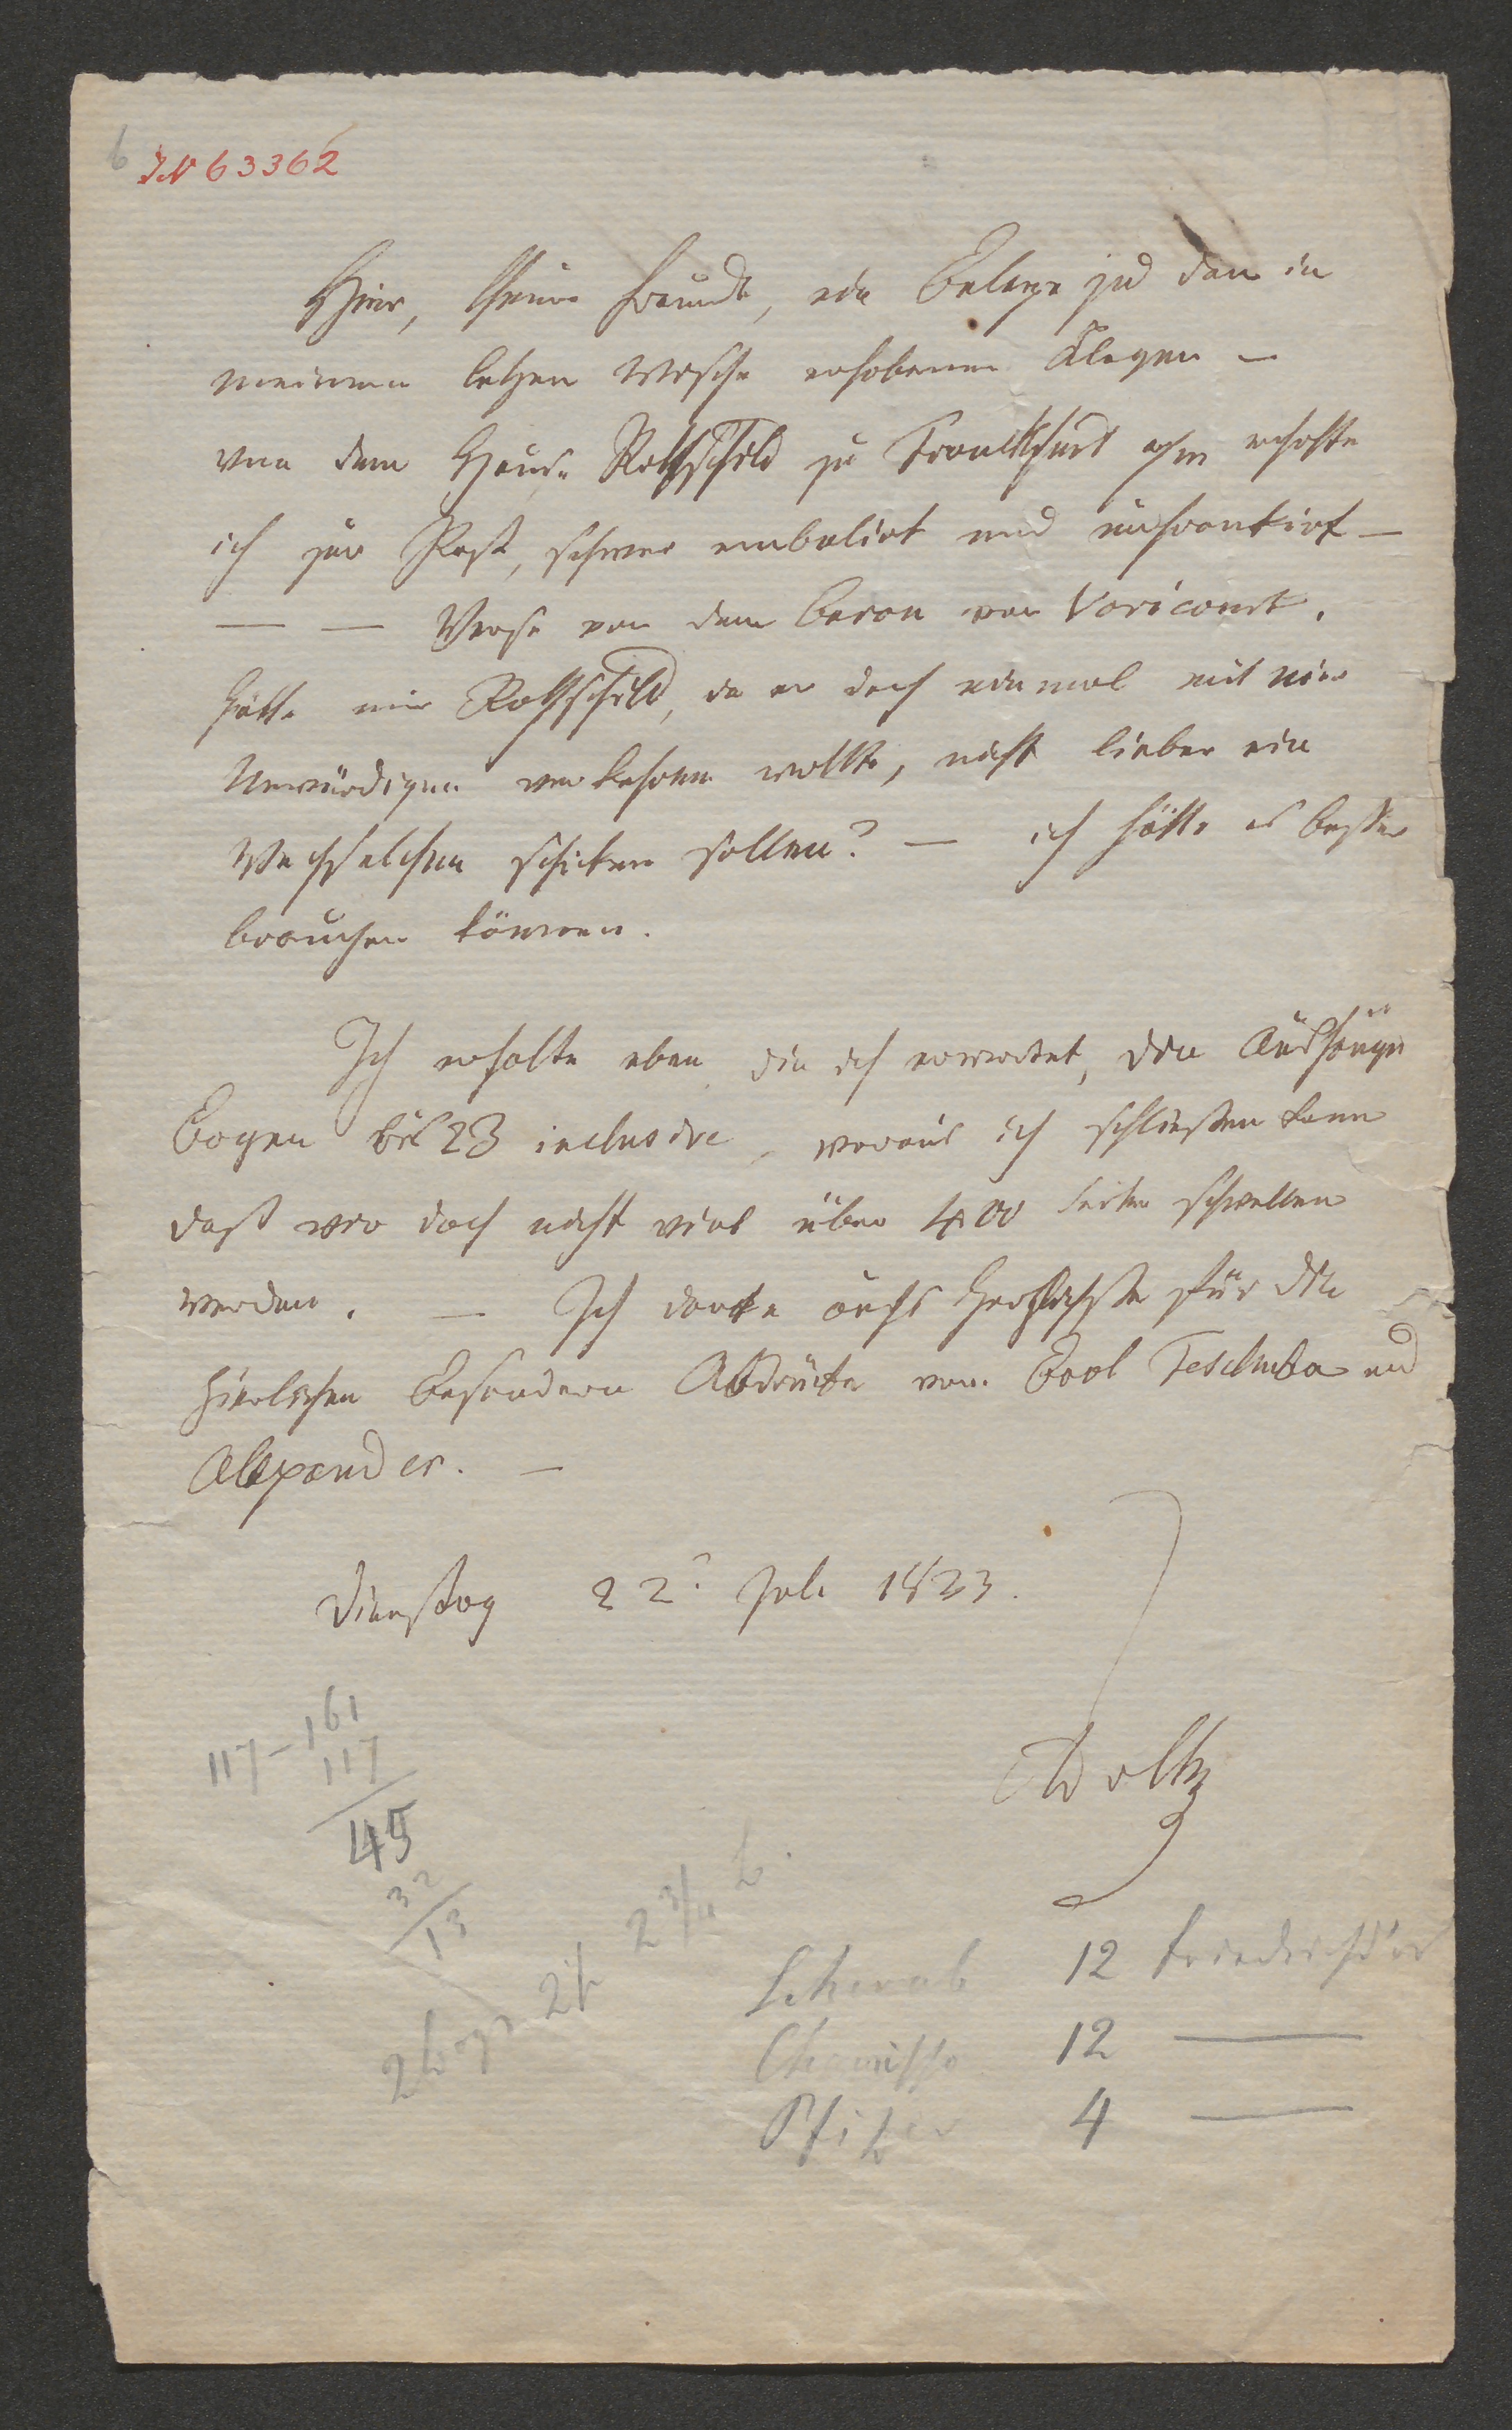 6 IN 63362
Hier, theurer Freund, ein Beleg zu den in
meinem letzen Wische erhobenen Klagen –
von dem Hause Rothschild zu Franckfurt a/m erhalte
ich zur Post, schwer embalirt und unfrankirt –
— — Verse von dem Baron von Voricourt.
hätte mir Rothschild, da er doch einmal mit mir
Unwürdigen verkehren wollte, nicht lieber ein
Wechselchen schicken sollen? – ich hätte es besser
brauchen können.
Ich erhalte eben die ich erwartet, die Aushänge
Bogen bis 23 inclusive, woraus ich schließen kann
daß wir doch nicht viel über 400 Seiten schwellen
werden. – Ich danke aufs Herzlichste für die
zierlichen besondern Abdrücke von
Alexander. –
Dienstag 22t Juli 1823.
Adolhz
161
117 –
117
45
32
13
2 bogn 2 1/2 2 3/4 b.
Schwab 12 Friedrichsd'or
Chamisso 12 —
Pfizer 4 —